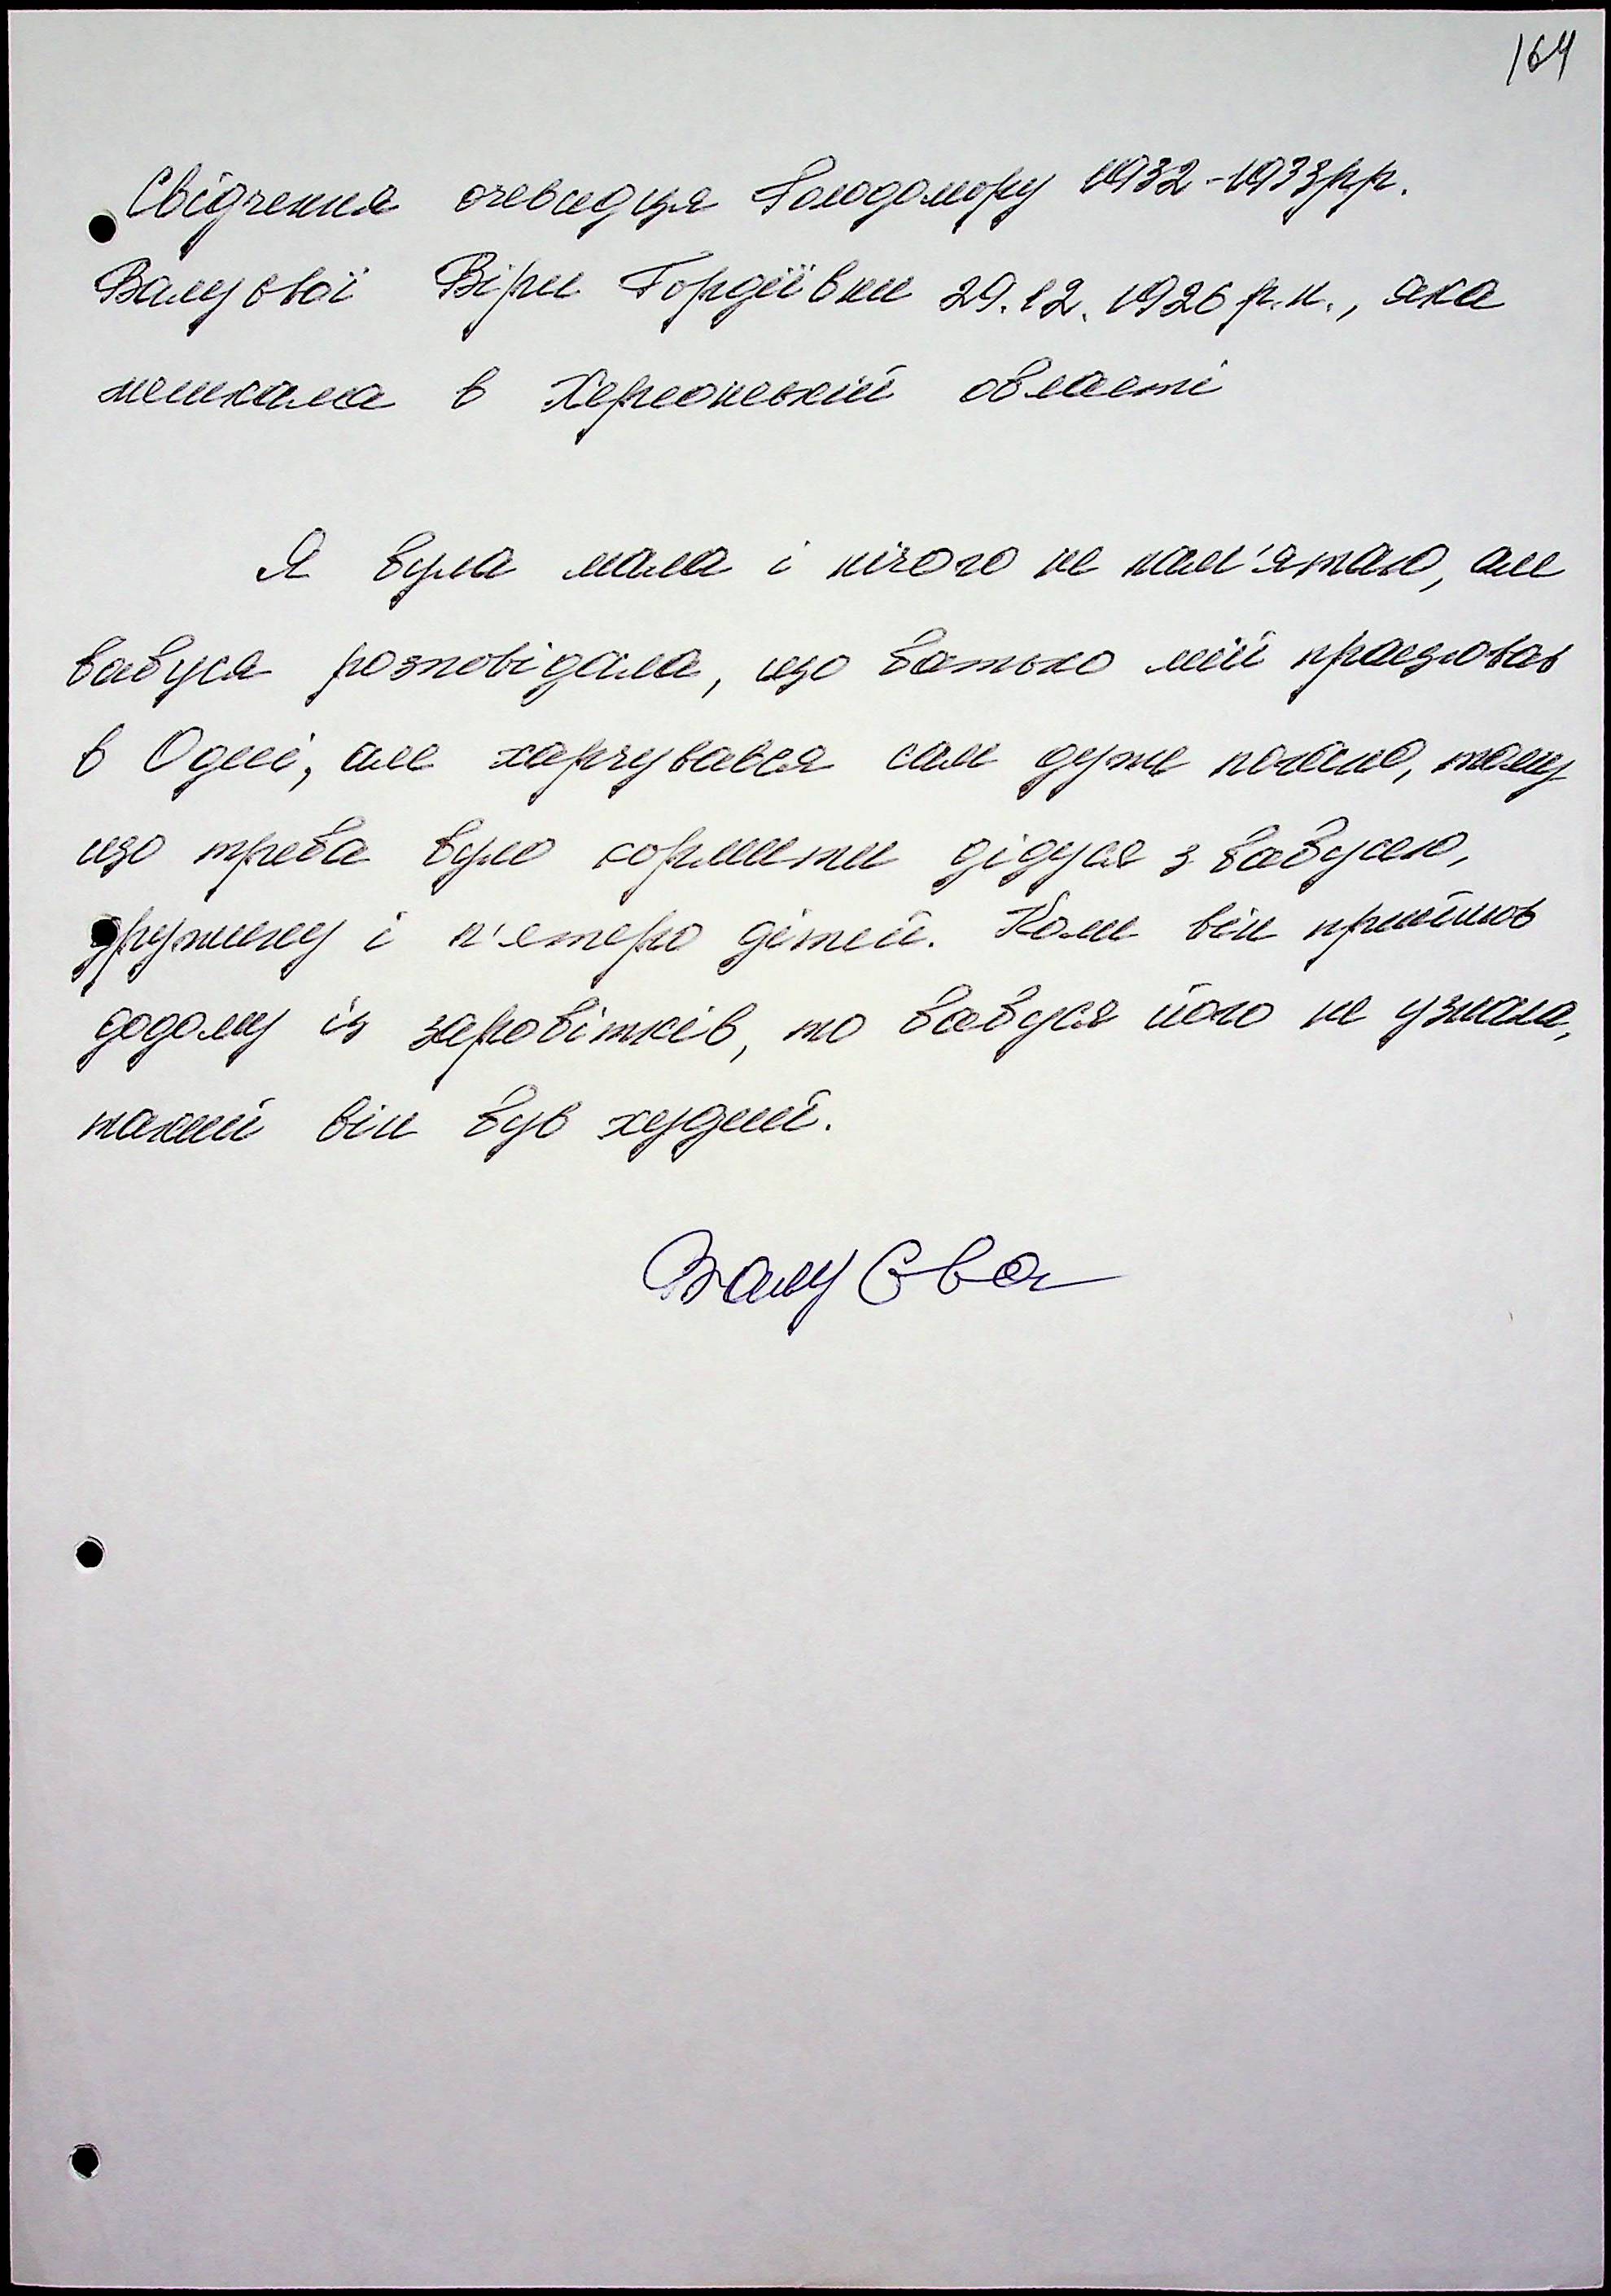 164
Свідчення очевидця Голодомору 1932-1933рр.
Валуєвої Віри Гордіївни 29.12.1926 р.н., яка
мешкала в Херсонській області
Я була мала і нічого не пам'ятаю, але
бабуся розповідала, що батько мій працював
в Одесі, але харчувався сам дуже погано, тому
що треба було кормити дідуся з бабусею,
дружину і п'ятеро дітей. Коли він прийшов
додому із заробітків, то бабуся його не узнала,
такий він був худий.